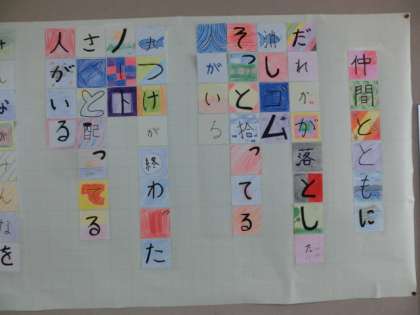 仲間とともに
だれかが落とした
消しゴム
そっと拾ってる
人がいる
つけが終わった
ノート
さっと配ってる
人がいる